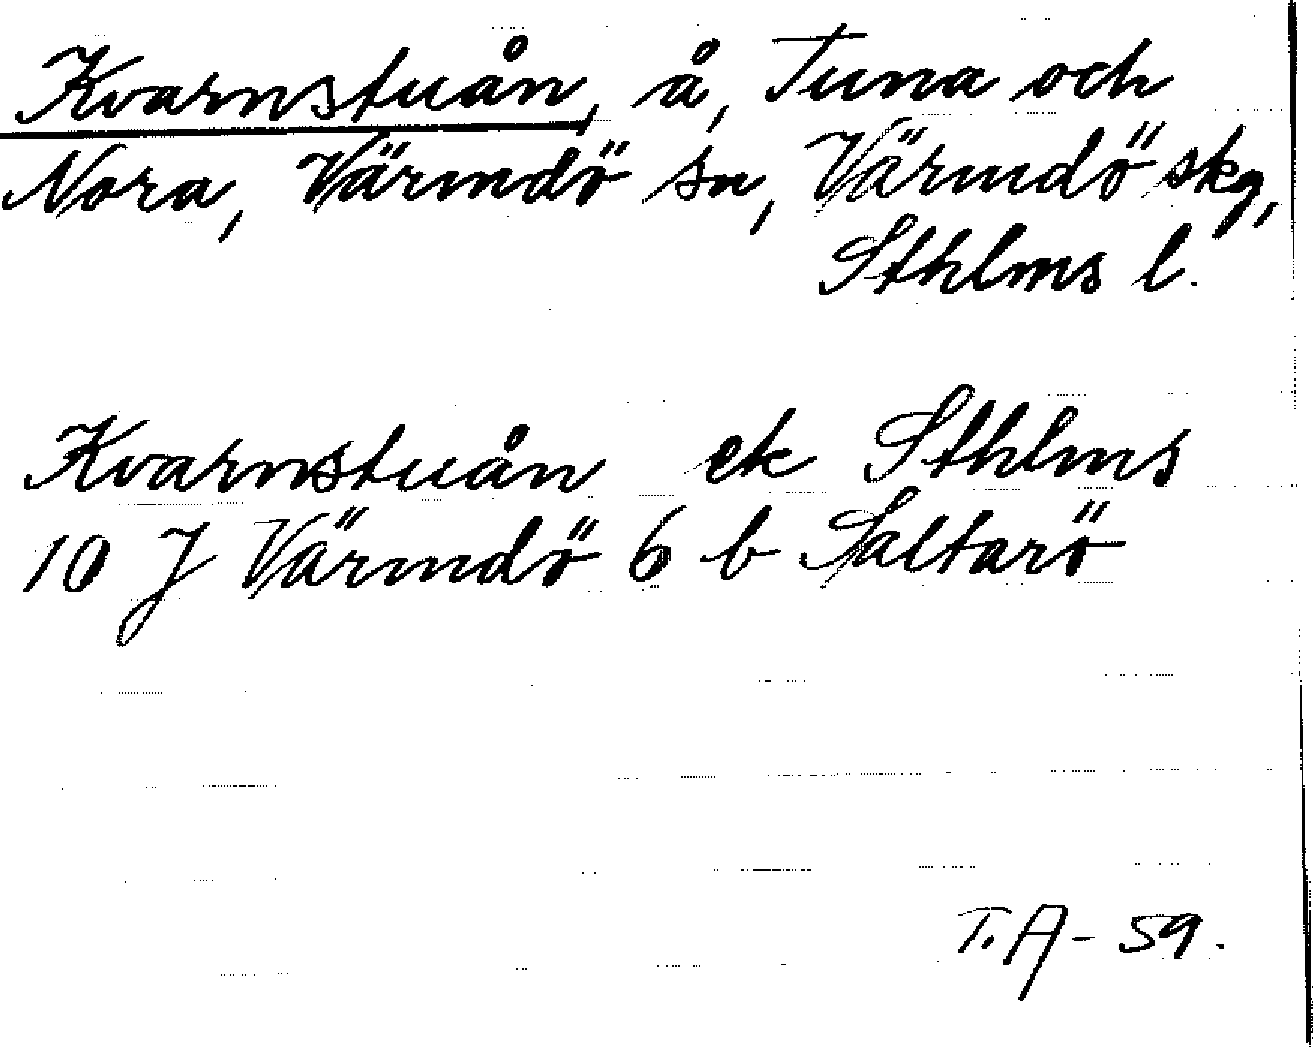 Kvarnstuån, å, Tuna och
Nora, Värmdö sn, Värmdö skg,
Sthlms l.
Kvarnstuån ek Sthlms
10 J Värmdö 6 b Saltarö
T. A - 59.